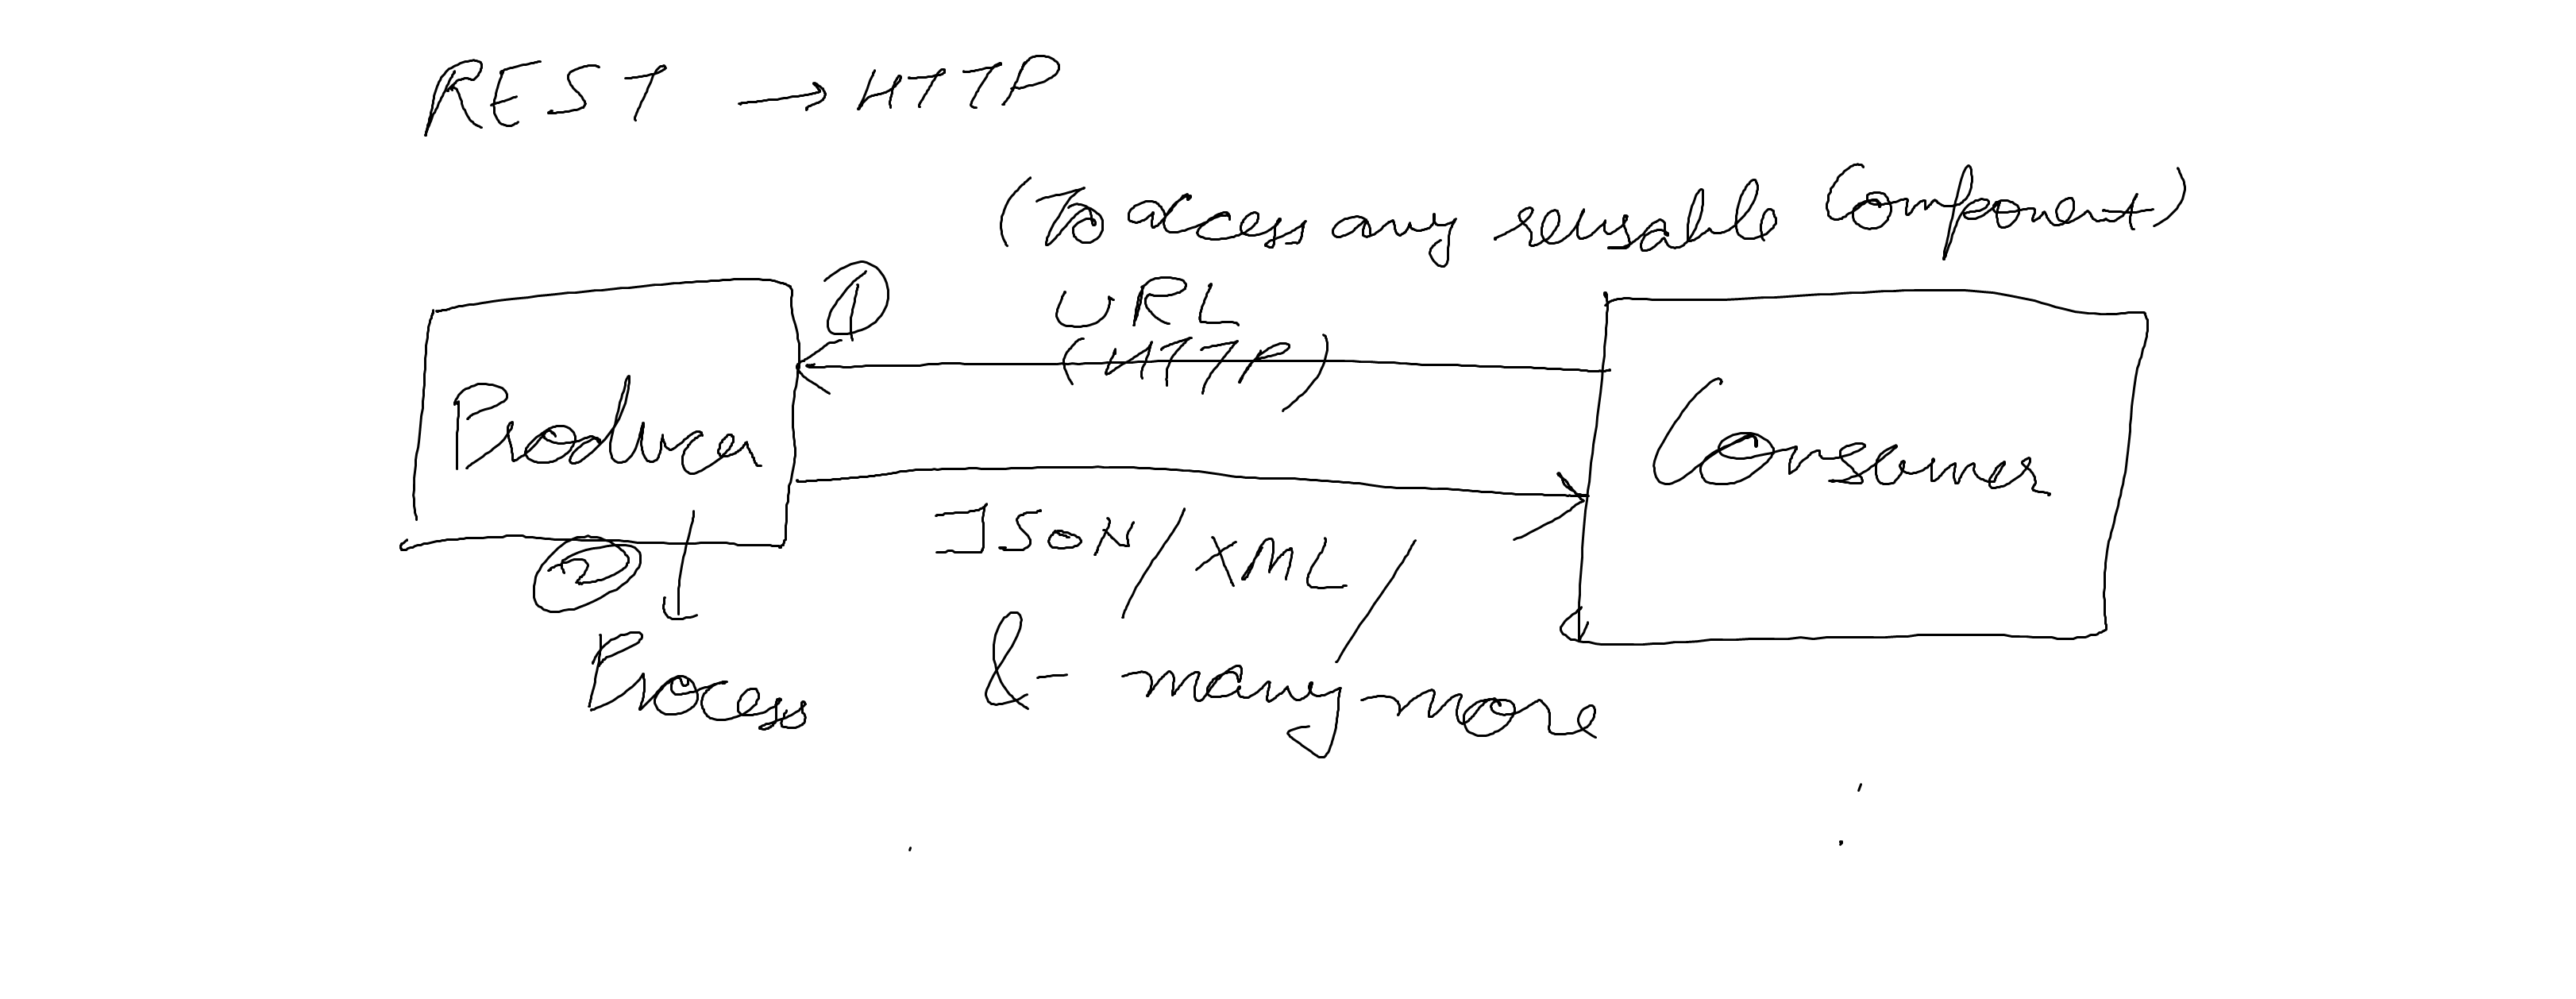 REST → HTTP
(To access any reusable Component)
① URL
(HTTP)
Producer
Consumer
JSON/XML/
②
Process
& many more